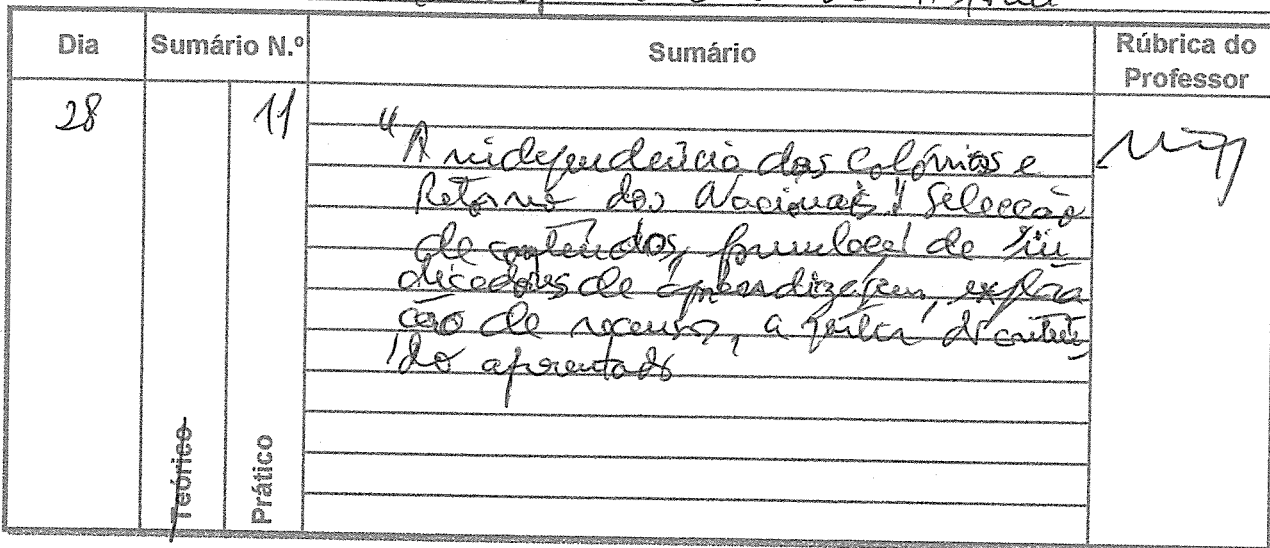 Dia Sumário N.º Sumário Rúbrica do Professor
28 11
"A independência das Colónias e
Retorno dos Nacionais" Selecção
de conteúdos, de in
dicadores de aprendizagem, explora
ção de recursos, a partir do conteú
do apresentado
Teórico
Prático